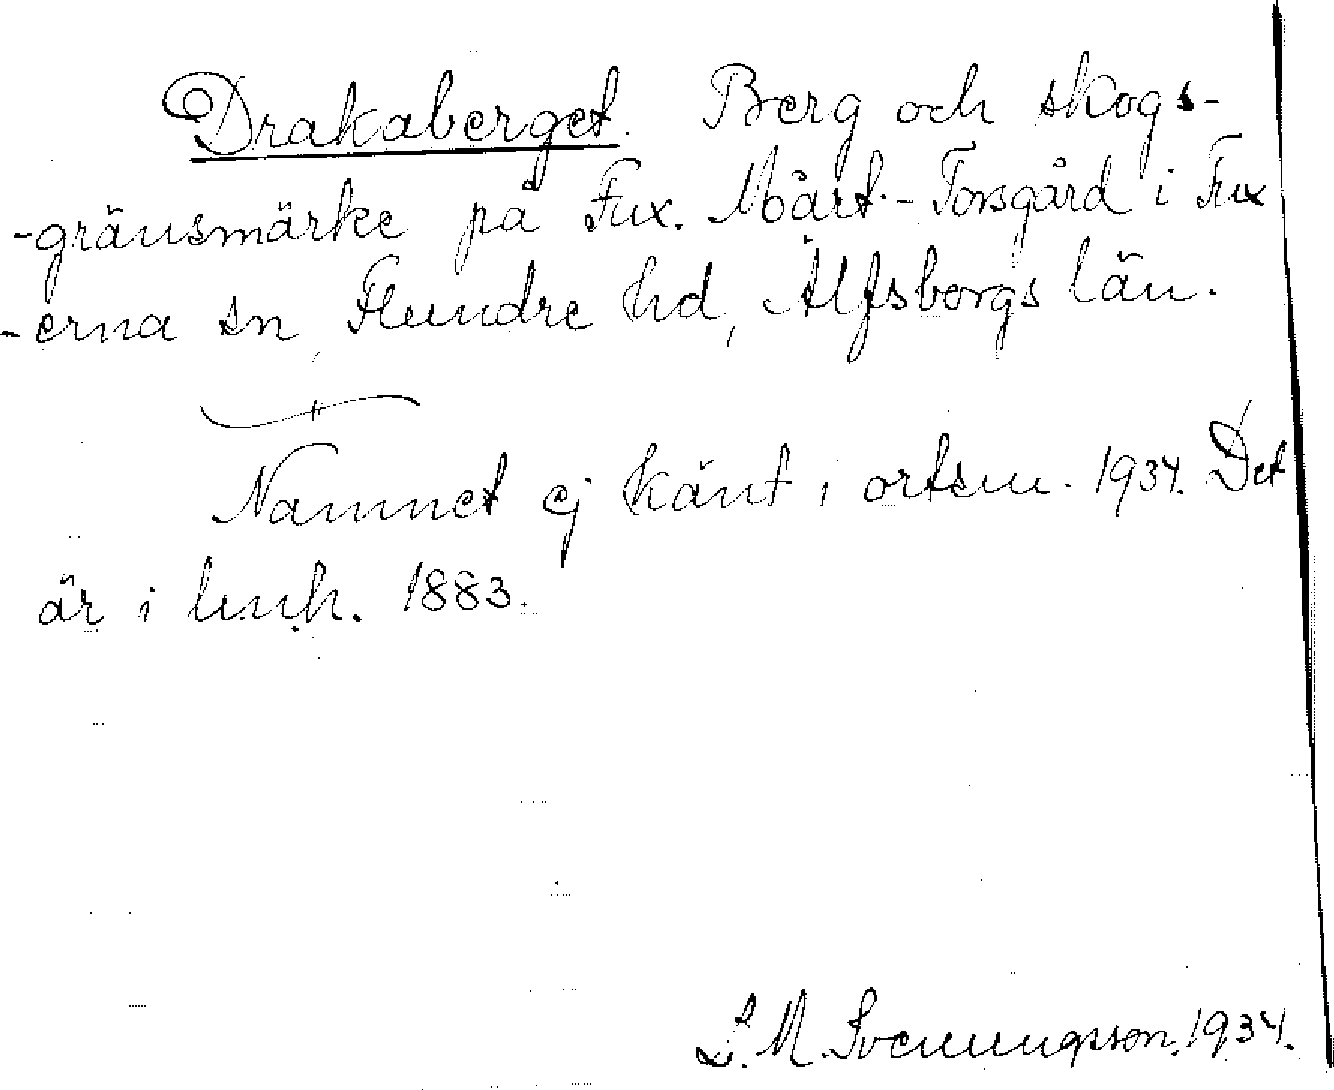 Drakaberget. Berg och skogs-
-gränsmärke på Fux. Mårt.-Torsgård i Fux
-erna sn, Flundre hd, Älfsborgs län.
Namnet ej känt i ortsm. 1934. Det
är i lmh. 1883.
L. M. Svenungsson. 1934.